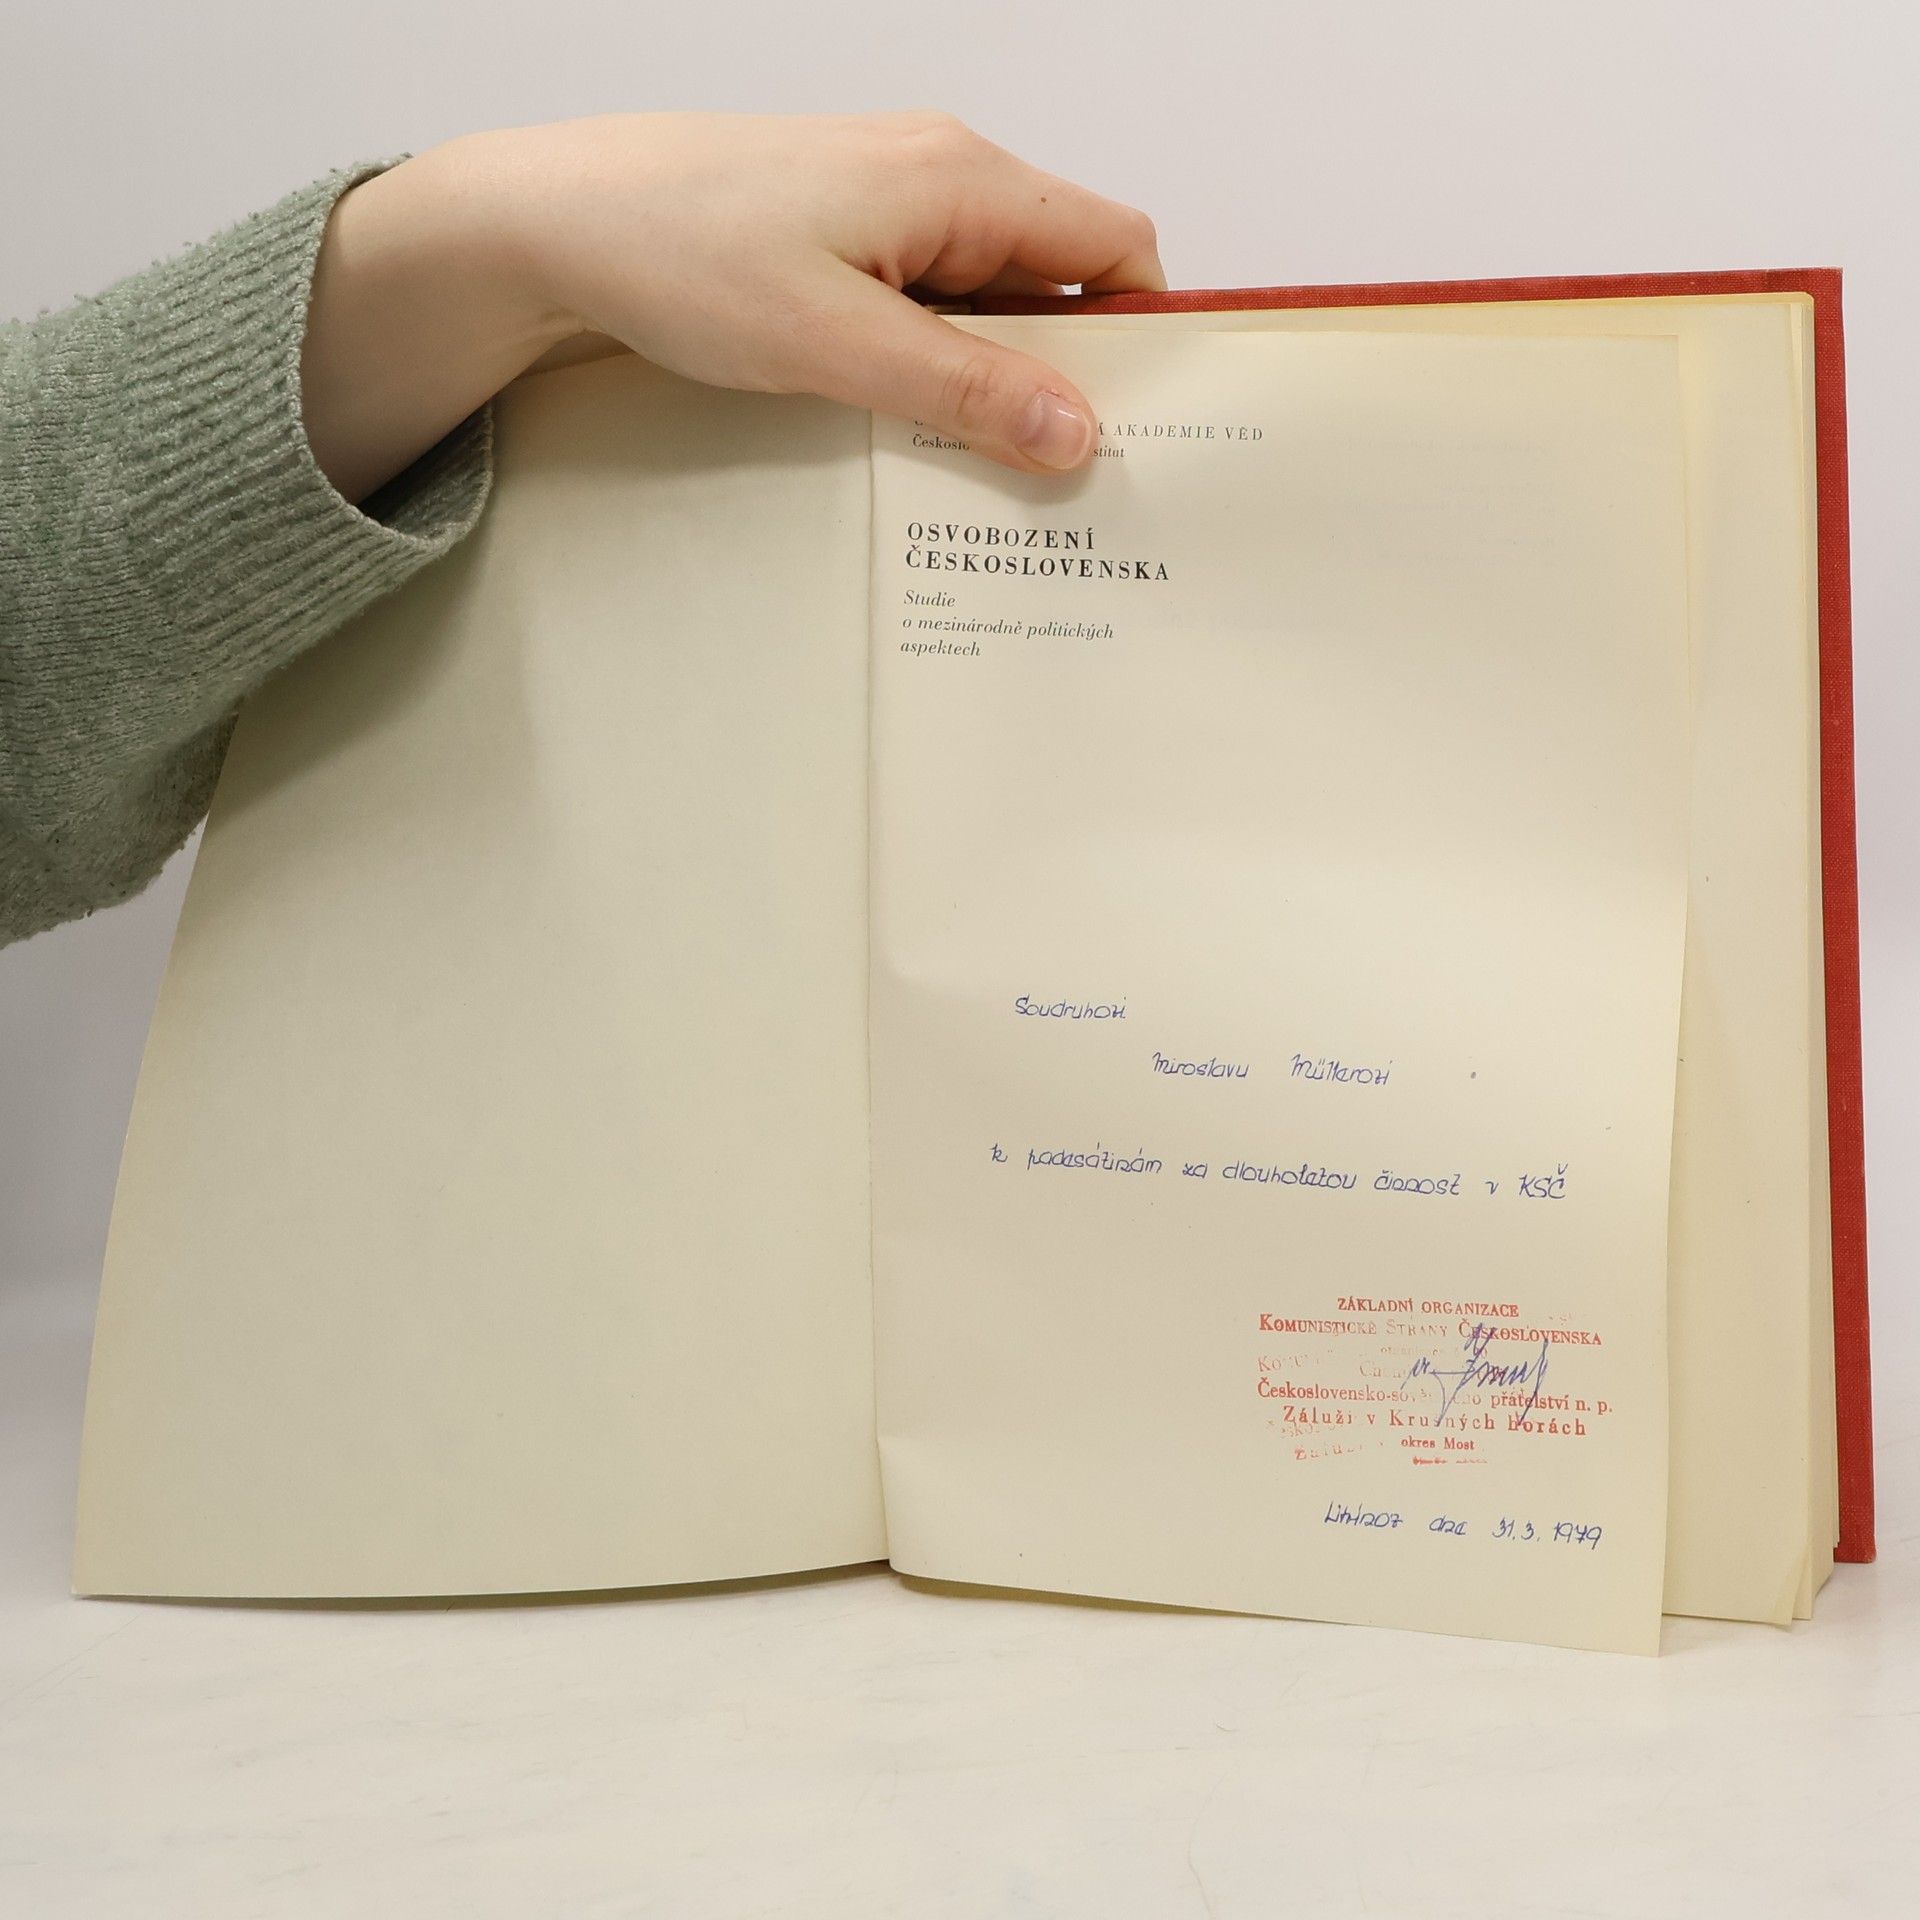 Á AKADEMIE VĚD
Českoslo stitut
OSVOBOZENÍ
ČESKOSLOVENSKA
Studie
o mezinárodně politických
aspektech
Soudruhovi
Miroslavu Müllerovi
k padesátinám za dlouholetou činnost v KSČ
ZÁKLADNÍ ORGANIZACE
KOMUNISTICKÉ STRANY ČESKOSLOVENSKA
Československo-sovětského přátelství n. p.
Záluží v Krušných horách
okres Most
Litvínov dne 31.3.1979